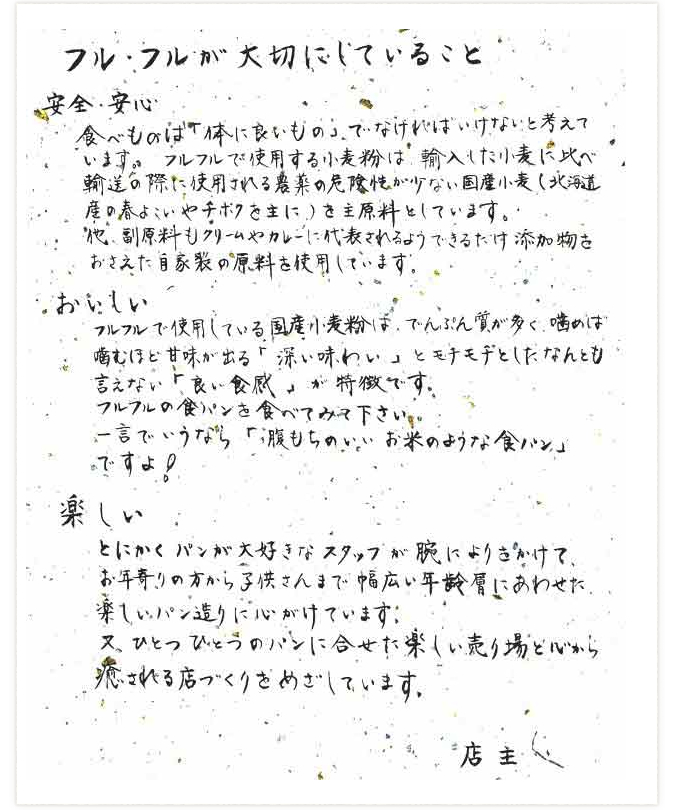 フル・フルが大切にしていること
安全・安心
食べものは「体に良いもの」でなければいけないと考えて
います。フルフルで使用する小麦粉は、輸入した小麦に比べ
輸送の際に使用される農薬の危険性が少ない国産小麦(北海道
産の春よこいやチホクを主に)を主原料としています。
他、副原料もクリームやカレーに代表されるようできるだけ添加物を
おさえた自家製の原料を使用しています。
おいしい
フルフルで使用している国産小麦粉は、でんぷん質が多く、噛めば
噛むほど甘味が出る「深い味わい」とモチモチとしたなんとも
言えない「良い食感」が特徴です。
フルフルの食パンを食べてみて下さい。
一言でいうなら「腹もちのいいお米のような食パン」
ですよ!
楽しい
とにかくパンが大好きなスタッフが腕によりをかけて、
お年寄りの方から子供さんまで幅広い年齢層にあわせた
楽しいパン造りに心がけています。
又、ひとつひとつのパンに合せた楽しい売り場と心から
癒される店づくりをめざしています。
店主